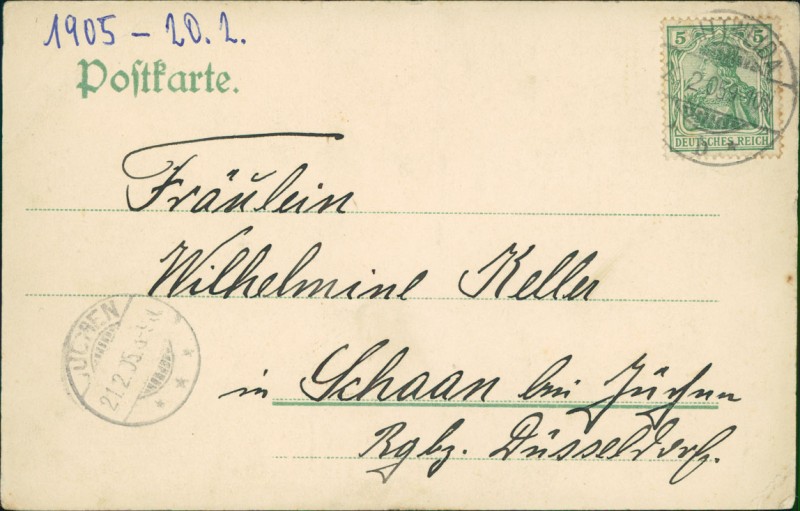 1905 – 20. 2.
Postkarte.
5 5
DEUTSCHES REICH
2.05
Fräulein
Wilhelmine Keller
in Schaan bei Jüchen
Rgbz. Düsseldorf.
JÜCHEN
21.2.05